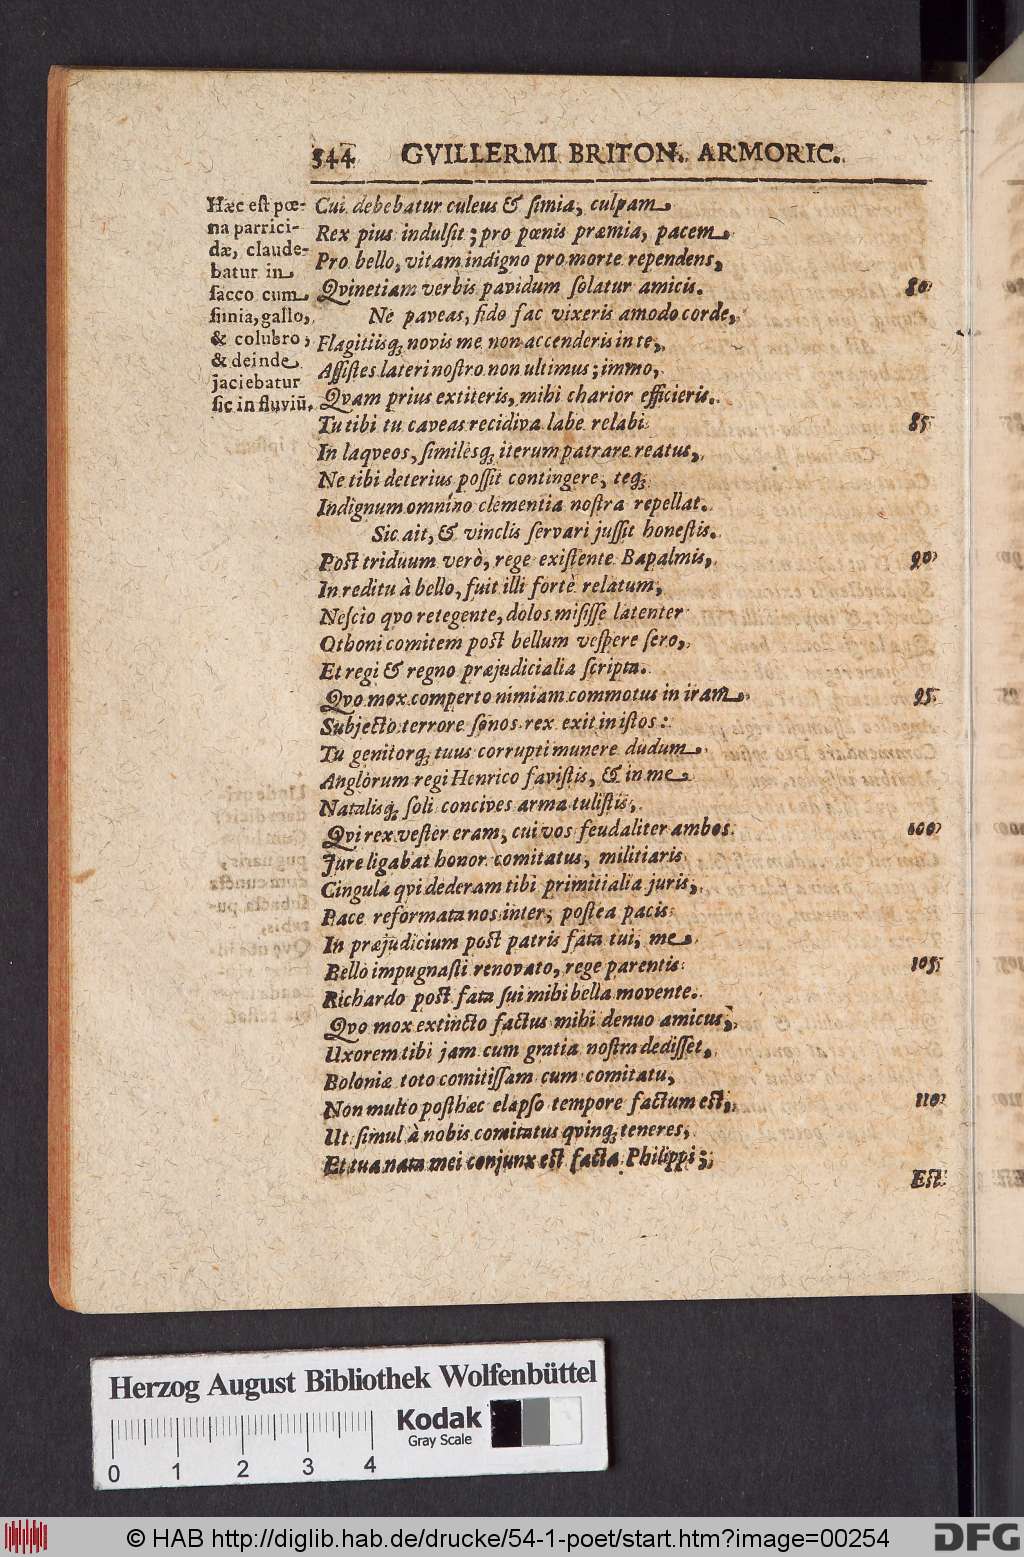 344 GVILLERMI BRITON. ARMORIC.
Hæc est pœ-
na parrici-
dæ, claude-
batur in
sacco cum
simia, gallo,
& colubro,
& deinde
jaciebatur
sic in fluviũ.
Cui debebatur culeus & simia, culpam
Rex pius indulsit; pro pœnis præmia, pacem
Pro bello, vitam indigno pro morte rependens,
Qvinetiam verbis pavidum solatur amicis. 80
Ne paveas, fido fac vixeris amodo corde,
Flagitiisq; novis me non accenderis in te,
Assistes lateri nostro non ultimus; immo,
Qvam prius extiteris, mihi charior efficieris.
Tu tibi tu caveas recidiva labe relabi 85
In laqveos, similesq; iterum patrare reatus,
Ne tibi deterius possit contingere, teq;
Indignum omnino clementia nostra repellat.
Sic ait, & vinclis servari jussit honestis.
Post triduum verò, rege existente Bapalmis, 90
In reditu à bello, fuit illi fortè relatum,
Nescio qvo retegente, dolos misisse latenter
Othoni comitem post bellum vespere sero,
Et regi & regno præjudicialia scripta.
Qvo mox comperto nimiam commotus in iram 95
Subjecto terrore sonos rex exit in istos:
Tu genitorq; tuus corrupti munere dudum
Anglorum regi Henrico favistis, & in me
Natalisq; soli concives arma tulistis,
Qvi rex vester eram, cui vos feudaliter ambos 100
Jure ligabat honor comitatus, militiaris
Cingula qvi dederam tibi primitialia juris,
Pace reformata nos inter, postea pacis
In præjudicium post patris fata tui, me
Bello impugnasti renovato, rege parentis 105
Richardo post fata sui mihi bella movente.
Qvo mox extincto factus mihi denuo amicus,
Uxorem tibi jam cum gratia nostra dedisset,
Boloniæ toto comitissam cum comitatu,
Non multo posthæc elapso tempore factum est, 110
Ut simul à nobis comitatus qvinq; teneres,
Et tua nata mei conjunx est facta Philippi;
Est
Herzog August Bibliothek Wolfenbüttel
Kodak
Gray Scale
0 1 2 3 4
© HAB http://diglib.hab.de/drucke/54-1-poet/start.htm?image=00254
DFG